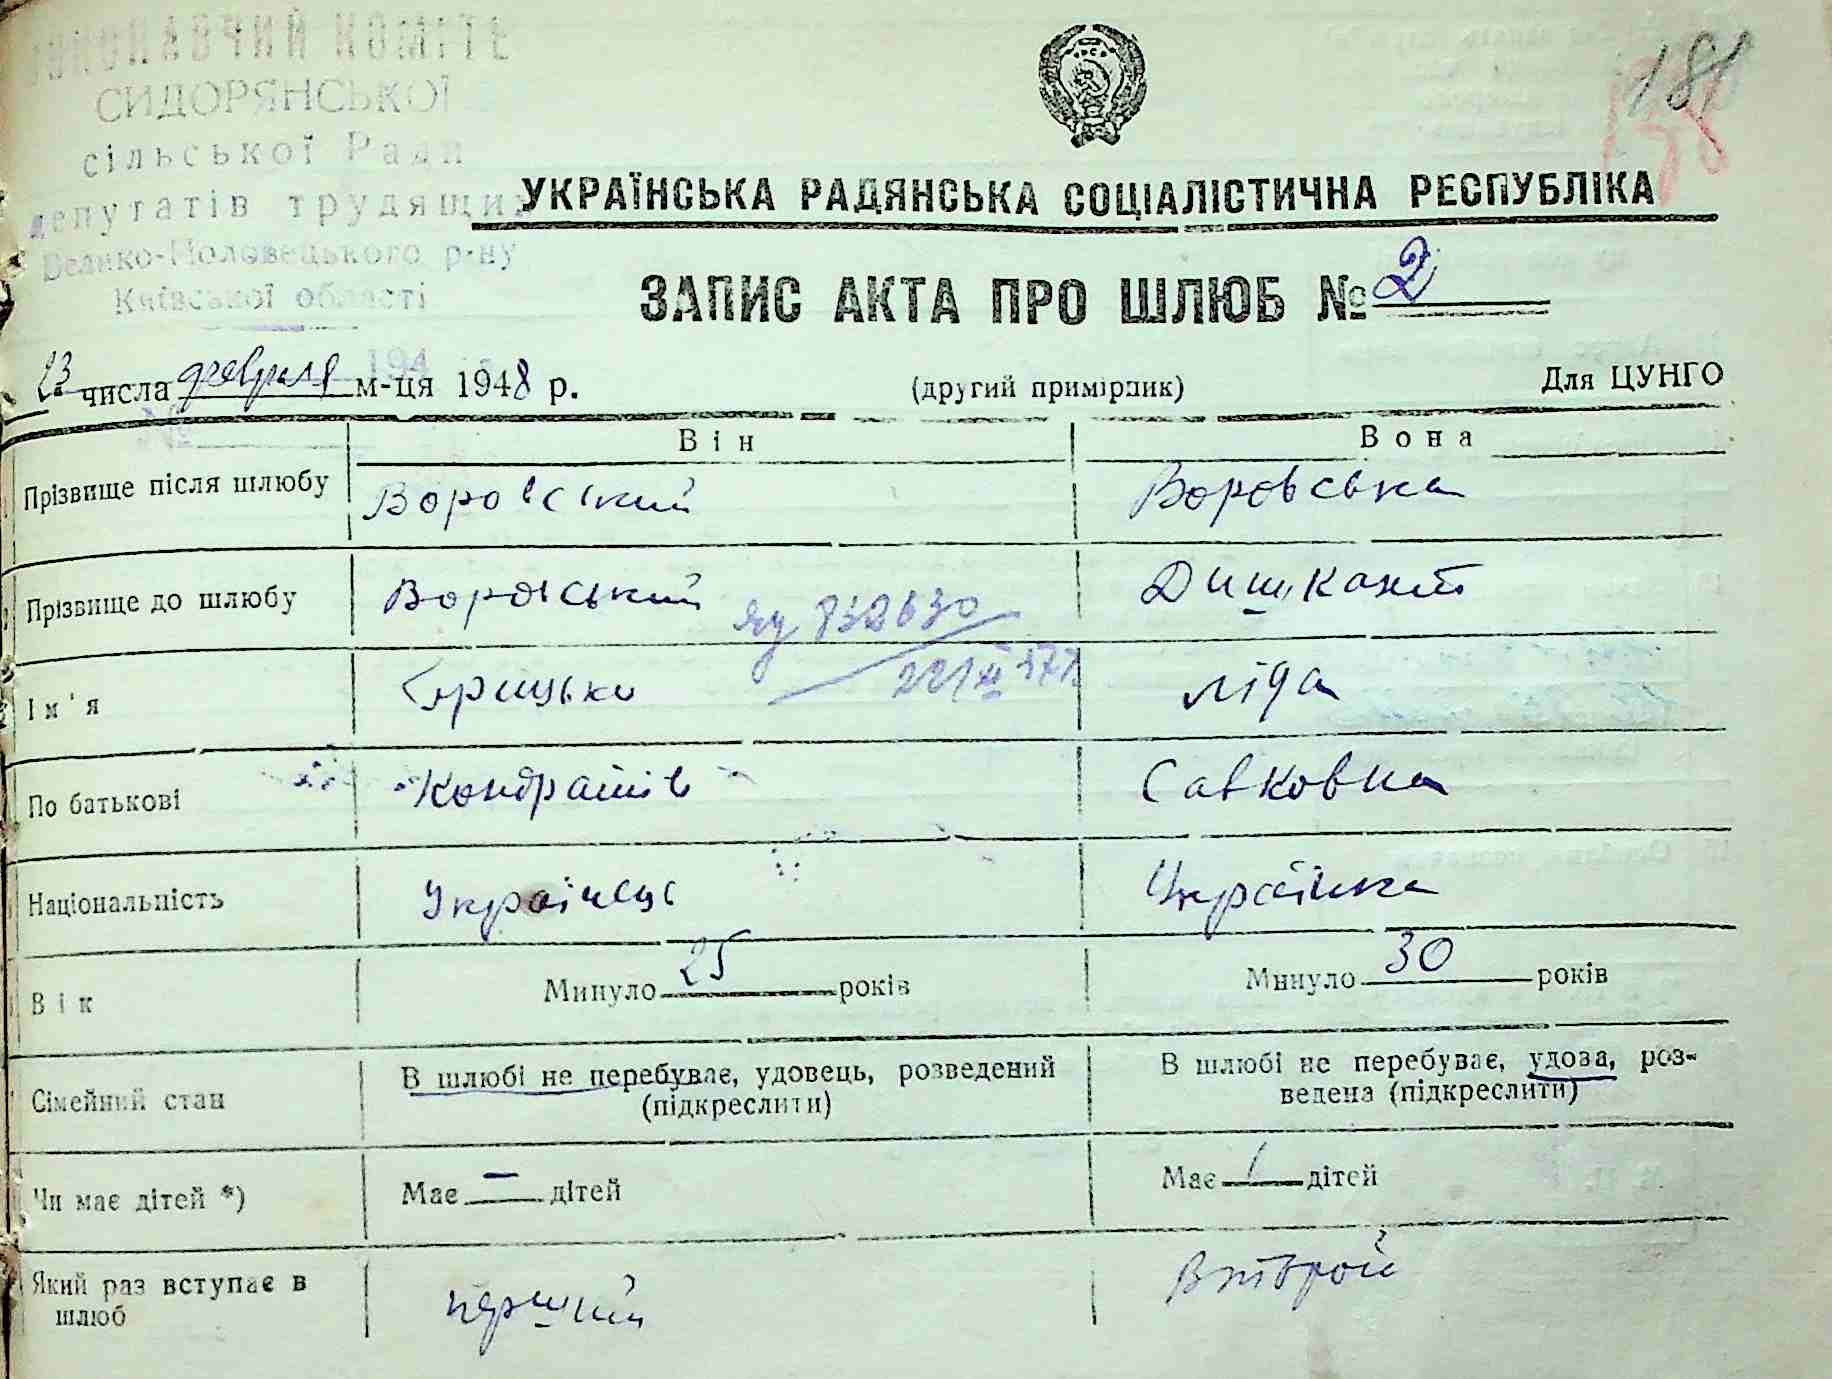 ВИКОНАВЧИЙ КОМІТЕ
СИДОРЯНСЬКОЇ
сільської Ради
депутатів трудящих
Велико-Половецького р-ну
Київської області
194
№
181
УКРАЇНСЬКА РАДЯНСЬКА СОЦІАЛІСТИЧНА РЕСПУБЛІКА
ЗАПИС АКТА ПРО ШЛЮБ № 2
23 числа февраля м-ця 1948 р. (другий примірник) Для ЦУНГО
Він Вона
Прізвище після шлюбу Воровський Воровська
Прізвище до шлюбу Воровський Дишкант
яу 832630
Ім'я Грицько Ліда
По батькові Кондратів Савковна
Національність Українець Українка
Вік Минуло 25 років Минуло 30 років
Сімейний стан В шлюбі не перебуває, удовець, розведений (підкреслити) В шлюбі не перебуває, удова, роз-
ведена (підкреслити)
Чи має дітей *) Має — дітей Має 1 дітей
Який раз вступає в шлюб перший второй